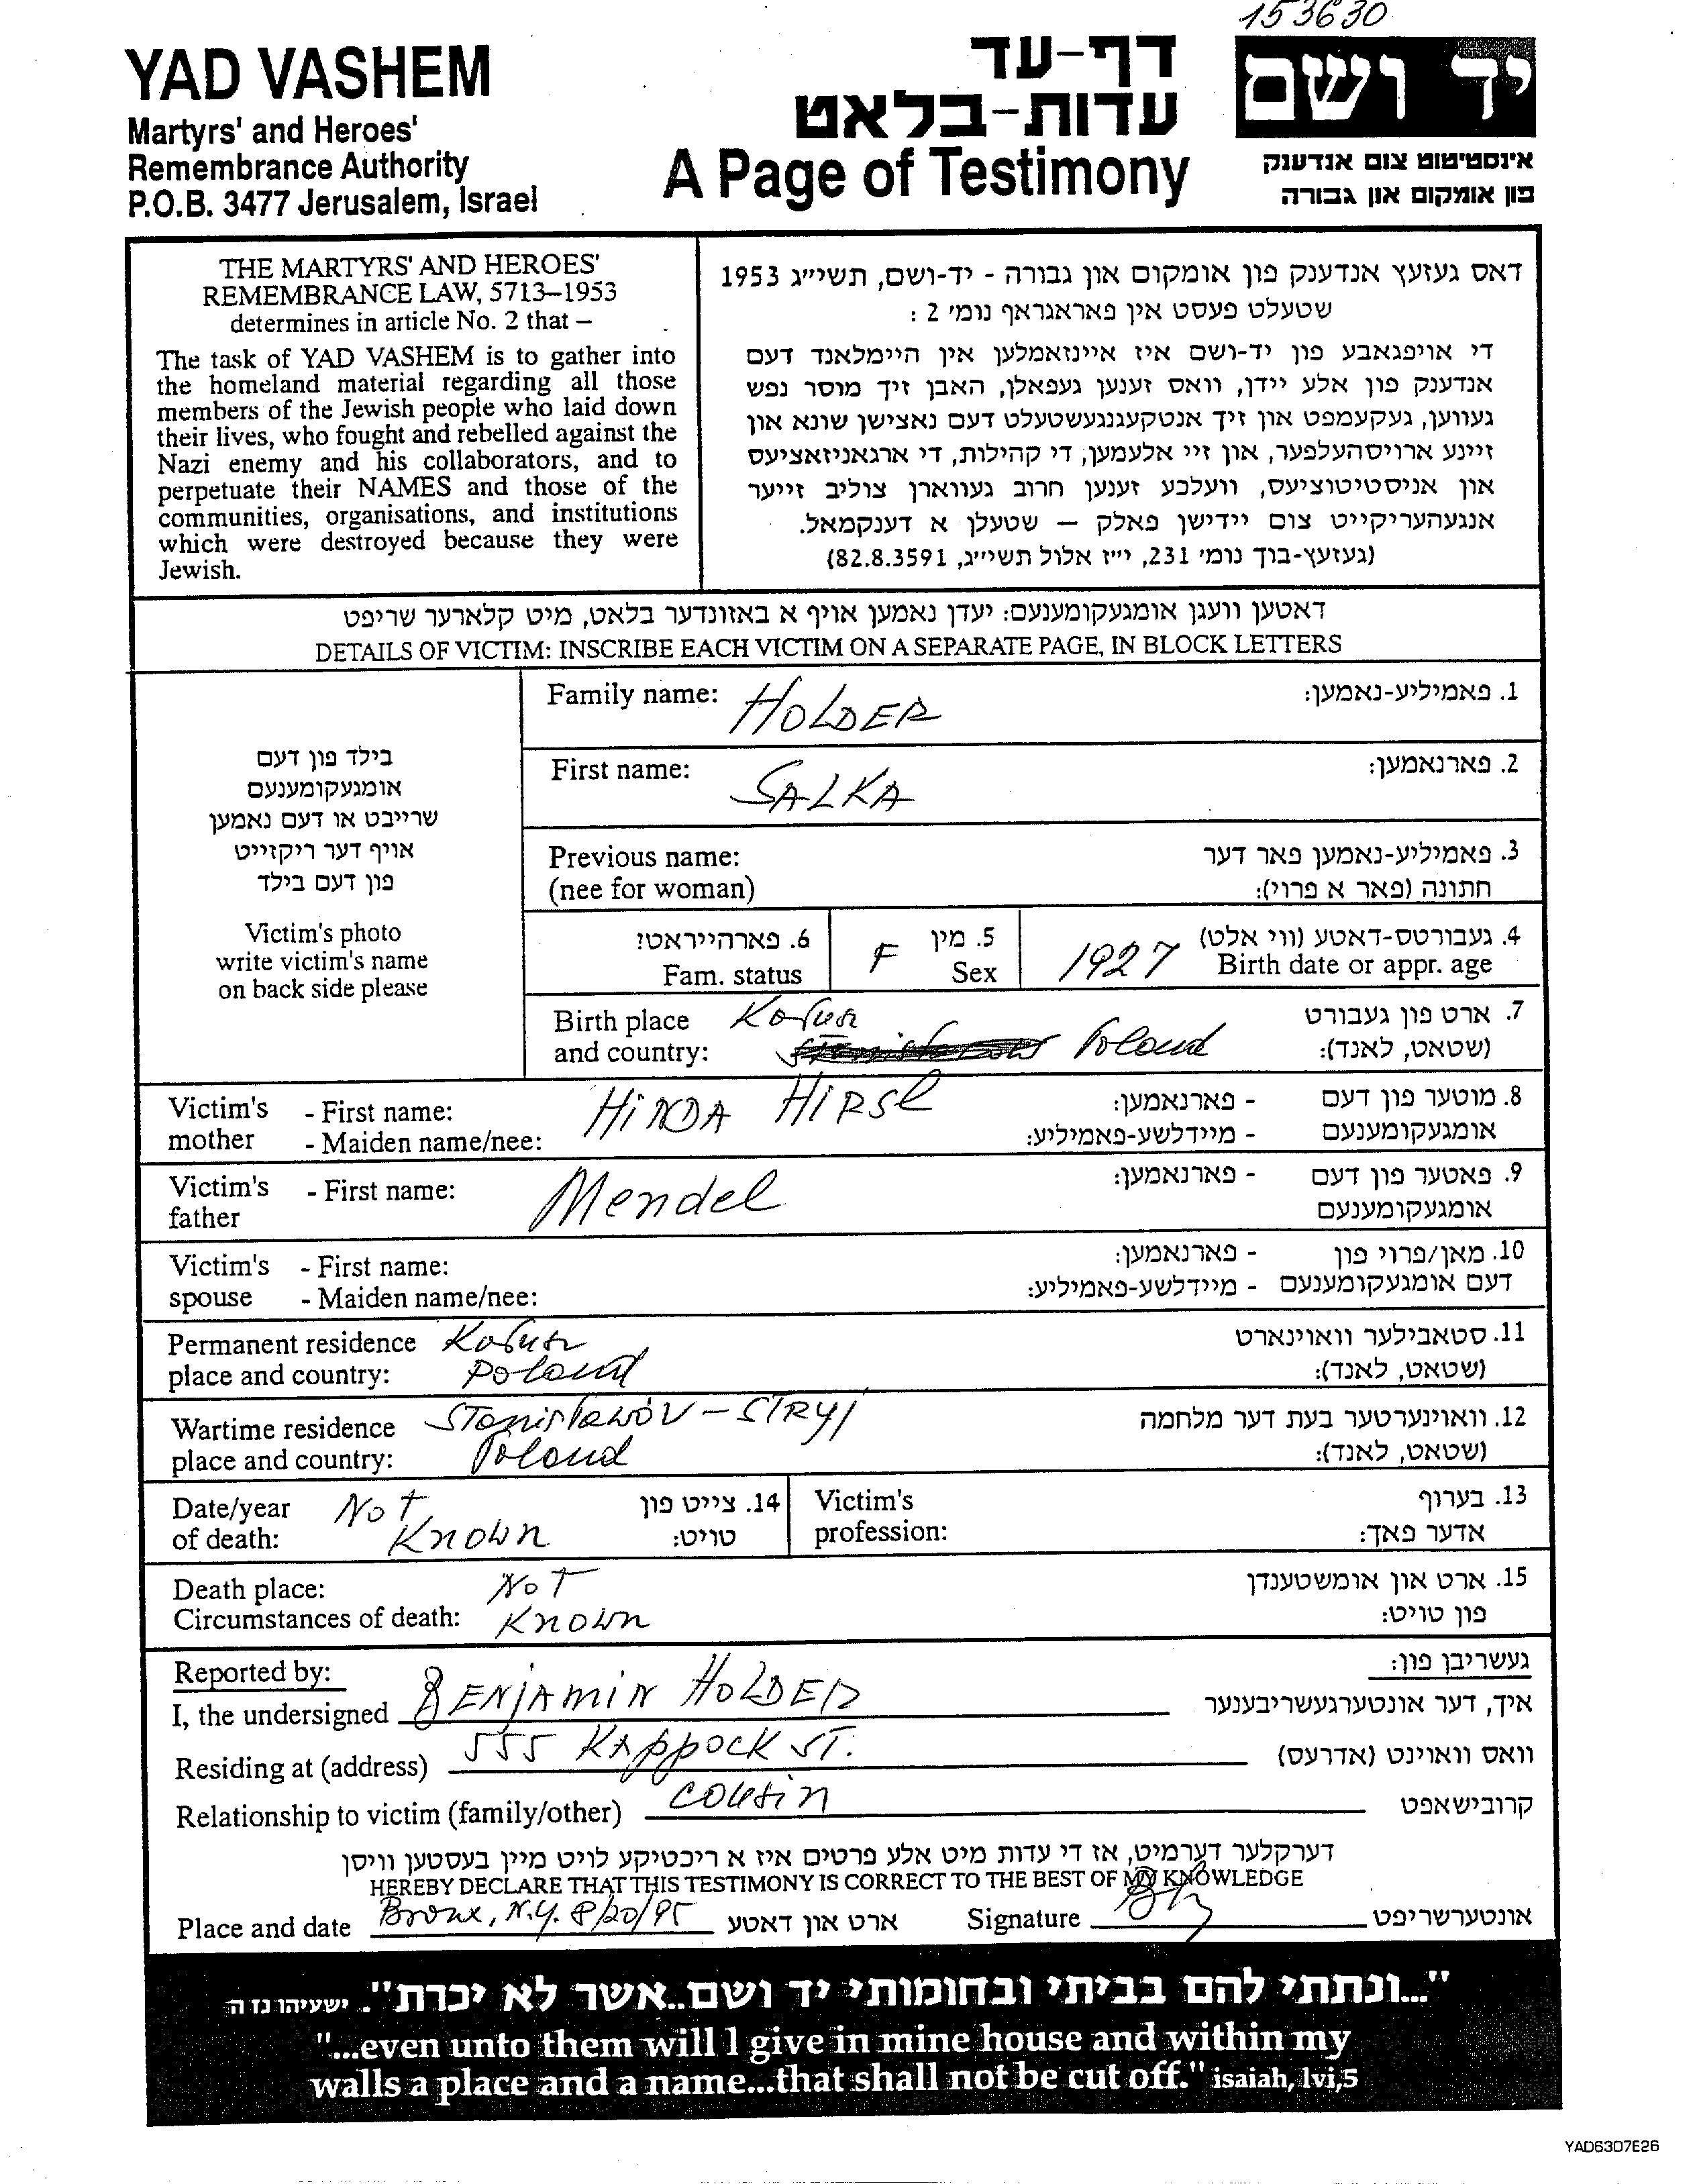 153630
YAD VASHEM
Martyrs' and Heroes'
Remembrance Authority
P.O.B. 3477 Jerusalem, Israel
דף-עד
עדות-בלאט
A Page of Testimony
יד ושם
אינסטיטוט צום אנדענק
פון אומקום און גבורה
THE MARTYRS' AND HEROES'
REMEMBRANCE LAW, 5713–1953
determines in article No. 2 that –
The task of YAD VASHEM is to gather into
the homeland material regarding all those
members of the Jewish people who laid down
their lives, who fought and rebelled against the
Nazi enemy and his collaborators, and to
perpetuate their NAMES and those of the
communities, organisations, and institutions
which were destroyed because they were
Jewish.
דאס געזעץ אנדענק פון אומקום און גבורה - יד-ושם, תשי״ג 1953
שטעלט פעסט אין פאראגראף נומ׳ 2 :
די אויפגאבע פון יד-ושם איז איינזאמלען אין היימלאנד דעם
אנדענק פון אלע יידן, וואס זענען געפאלן, האבן זיך מוסר נפש
געווען, געקעמפט און זיך אנטקעגנגעשטעלט דעם נאצישן שונא און
זיינע ארויסהעלפער, און זיי אלעמען, די קהילות, די ארגאניזאציעס
און אניסטיטוציעס, וועלכע זענען חרוב געווארן צוליב זייער
אנגעהעריקייט צום יידישן פאלק – שטעלן א דענקמאל.
(געזעץ-בוך נומ׳ 231, י״ז אלול תשי״ג, 82.8.3591)
דאטען וועגן אומגעקומענעם: יעדן נאמען אויף א באזונדער בלאט, מיט קלארער שריפט
DETAILS OF VICTIM: INSCRIBE EACH VICTIM ON A SEPARATE PAGE, IN BLOCK LETTERS
בילד פון דעם
אומגעקומענעם
שרייבט או דעם נאמען
אויף דער ריקזייט
פון דעם בילד
Victim's photo
write victim's name
on back side please
Family name: HOLDER 1. פאמיליע-נאמען:
First name: SALKA 2. פארנאמען:
Previous name: 3. פאמיליע-נאמען פאר דער
(nee for woman) חתונה (פאר א פרוי):
6. פארהייראט? F 5. מין 1927 4. געבורטס-דאטע (ווי אלט)
Fam. status Sex Birth date or appr. age
Birth place 7. ארט פון געבורט
and country: Poland (שטאט, לאנד):
Victim's - First name: HINDA HIRSL - פארנאמען: 8. מוטער פון דעם
mother - Maiden name/nee: - מיידלשע-פאמיליע: אומגעקומענעם
Victim's - First name: Mendel - פארנאמען: 9. פאטער פון דעם
father אומגעקומענעם
Victim's - First name: - פארנאמען: 10. מאן/פרוי פון
spouse - Maiden name/nee: - מיידלשע-פאמיליע: דעם אומגעקומענעם
Permanent residence 11. סטאבילער וואוינארט
place and country: Poland (שטאט, לאנד):
Wartime residence STanisławóv – STRYJ 12. וואוינערטער בעת דער מלחמה
place and country: Poland (שטאט, לאנד):
Date/year NoT 14. צייט פון Victim's 13. בערוף
of death: Known טויט: profession: אדער פאך:
Death place: NoT 15. ארט און אומשטענדן
Circumstances of death: Known פון טויט:
Reported by: געשריבן פון:
I, the undersigned BENJAMIN HOLDER איך, דער אונטערגעשריבענער
Residing at (address) 555 KAppock ST. וואס וואוינט (אדרעס)
Relationship to victim (family/other) cousin קרובישאפט
דערקלער דערמיט, אז די עדות מיט אלע פרטים איז א ריכטיקע לויט מיין בעסטען וויסן
HEREBY DECLARE THAT THIS TESTIMONY IS CORRECT TO THE BEST OF MY KNOWLEDGE
Place and date Bronx, N.Y. 8/20/95 ארט און דאטע Signature אונטערשריפט
"...ונתתי להם בביתי ובחומותי יד ושם..אשר לא יכרת". ישעיהו נז ה
"...even unto them will I give in mine house and within my
walls a place and a name...that shall not be cut off." isaiah, lvi,5
YAD6307E26